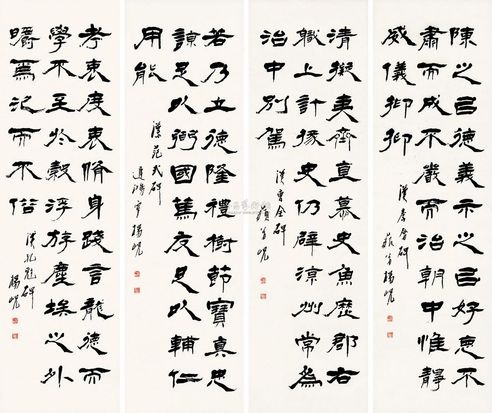 陳之以德義示之以好惡不
肅而成不嚴而治朝中惟靜
威儀抑抑
漢李翕碑
藐翁楊峴
清擬夷齊直慕史魚歷郡右
職上計掾史仍辟涼州常為
治中別駕
漢曹全碑
藐翁峴
若乃立德隆禮樹節寶真忠
諒足以弼國篤友足以輔仁
用能
漢范式碑
遲鴻軒楊峴
孝衷度衷脩身踐言龍德而
學不至於穀浮游塵埃之外
皭焉氾而不俗
漢孔彪碑
楊峴